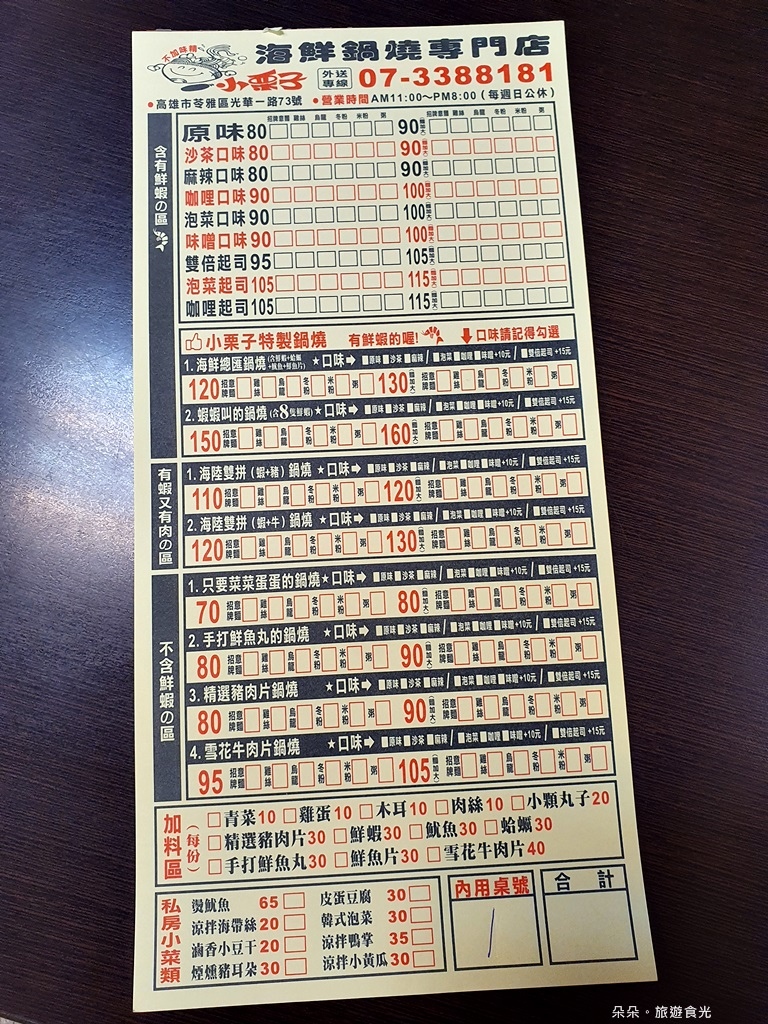 不加味精
海鮮鍋燒專門店
小栗子 外送專線 07-3388181
●高雄市苓雅區光華一路73號 ●營業時間AM11:00～PM8:00（每週日公休）
含有鮮蝦の區
招牌意麵 雞絲 烏龍 冬粉 米粉 粥 招牌意麵 雞絲 烏龍 冬粉 米粉 粥
原味80 90(麵加大)
沙茶口味80 90(麵加大)
麻辣口味80 90(麵加大)
咖哩口味90 100(麵加大)
泡菜口味90 100(麵加大)
味噌口味90 100(麵加大)
雙倍起司95 105(麵加大)
泡菜起司105 115(麵加大)
咖哩起司105 115(麵加大)
小栗子特製鍋燒 有鮮蝦的喔! 口味請記得勾選
1.海鮮總匯鍋燒(含鮮蝦+蛤蠣+魷魚+鮮魚片) ★口味➡ 原味 沙茶 麻辣/ 泡菜 咖哩 味噌+10元/ 雙倍起司+15元
120 招牌意麵 雞絲 烏龍 冬粉 米粉 粥 130(麵加大) 招牌意麵 雞絲 烏龍 冬粉 米粉 粥
2.蝦蝦叫的鍋燒(含8隻鮮蝦) ★口味➡ 原味 沙茶 麻辣/ 泡菜 咖哩 味噌+10元/ 雙倍起司+15元
150 招牌意麵 雞絲 烏龍 冬粉 米粉 粥 160(麵加大) 招牌意麵 雞絲 烏龍 冬粉 米粉 粥
有蝦又有肉の區
1.海陸雙拼(蝦+豬)鍋燒 ★口味➡ 原味 沙茶 麻辣/ 泡菜 咖哩 味噌+10元/ 雙倍起司+15元
110 招牌意麵 雞絲 烏龍 冬粉 米粉 粥 120(麵加大) 招牌意麵 雞絲 烏龍 冬粉 米粉 粥
2.海陸雙拼(蝦+牛)鍋燒 ★口味➡ 原味 沙茶 麻辣/ 泡菜 咖哩 味噌+10元/ 雙倍起司+15元
120 招牌意麵 雞絲 烏龍 冬粉 米粉 粥 130(麵加大) 招牌意麵 雞絲 烏龍 冬粉 米粉 粥
不含鮮蝦の區
1.只要菜菜蛋蛋的鍋燒★口味➡ 原味 沙茶 麻辣/ 泡菜 咖哩 味噌+10元/ 雙倍起司+15元
70 招牌意麵 雞絲 烏龍 冬粉 米粉 粥 80(麵加大) 招牌意麵 雞絲 烏龍 冬粉 米粉 粥
2.手打鮮魚丸的鍋燒 ★口味➡ 原味 沙茶 麻辣/ 泡菜 咖哩 味噌+10元/ 雙倍起司+15元
80 招牌意麵 雞絲 烏龍 冬粉 米粉 粥 90(麵加大) 招牌意麵 雞絲 烏龍 冬粉 米粉 粥
3.精選豬肉片鍋燒 ★口味➡ 原味 沙茶 麻辣/ 泡菜 咖哩 味噌+10元/ 雙倍起司+15元
80 招牌意麵 雞絲 烏龍 冬粉 米粉 粥 90(麵加大) 招牌意麵 雞絲 烏龍 冬粉 米粉 粥
4.雪花牛肉片鍋燒 ★口味➡ 原味 沙茶 麻辣/ 泡菜 咖哩 味噌+10元/ 雙倍起司+15元
95 招牌意麵 雞絲 烏龍 冬粉 米粉 粥 105(麵加大) 招牌意麵 雞絲 烏龍 冬粉 米粉 粥
加料區(每份)
青菜10 雞蛋10 木耳10 肉絲10 小顆丸子20
精選豬肉片30 鮮蝦30 魷魚30 蛤蠣30
手打鮮魚丸30 鮮魚片30 雪花牛肉片40
私房小菜類
燙魷魚 65 皮蛋豆腐 30
涼拌海帶絲20 韓式泡菜 30
滷香小豆干20 涼拌鴨掌 35
煙燻豬耳朵30 涼拌小黃瓜30
內用桌號 合計
朵朵。旅遊食光